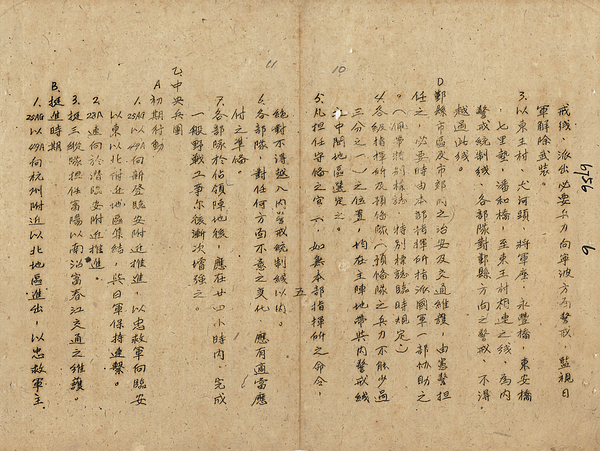 10
戒綫，派出必要兵力向寧波方面警戒，監視日
軍解除武裝。
3.以東王村、犬河頭、將軍座、永豐橋、東安橋
、七里墊、潘和橋，至東王村相連之綫，為內
警戒統制綫，各部隊對鄞縣方向之警戒，不得
越過此綫。
D鄞縣市區及市郊內之治安及交通維護，由憲警担
任之，必要時由本部指揮所指派國軍一部協助之
。（佩帶特別標誌，特別標誌臨時規定。）
4.各級指揮所及預備隊（預備隊之兵力不能少過
三分之一）之位置，均在主陣地帶與內警戒綫
之中間地區選定之。
5.凡担任守備之官兵，如無本部指揮所之命令，
五
11
絕對不得越入內警戒統制綫以內。
6.各部隊，對任何方面不意之變化，應有適當應
付之準備。
7.各部隊於佔領陣地後，應在廿四小時內，完成
一般野戰工事尔後漸次增强之。
乙、中央兵團
A初期行動
1.28A以49A向新登臨安附近推進，以忠救軍向臨安
以東以北附近地區集結，與日軍保持連繫。
2.28A速向於潛臨安附近推進。
3.挺三縱隊担任富陽以南沿富春江交通之維護。
B.挺進時期
1.28A以49A向杭州附近以北地區進出，以忠救軍主
6